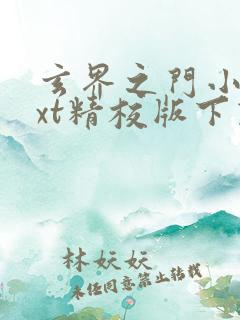 玄界之門小
xt精校版下
林妖妖
未经同意禁止转载